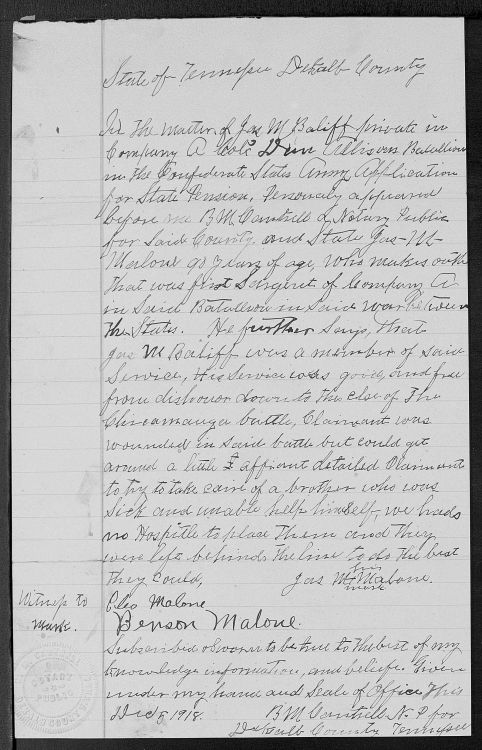 State of Tennessee Dekalb County
In the matter of Jas M Baliff private in
Company A Col's Allisons Batallion
in the Confederate States Army Application
for State Pension, Personaly appeared
before me B M Cantrell a Notary Public
for Said County and State Jas - M -
Malone 90 years of age, who makes oath
that was first Sargent of Company A
in Said Batallion in Said war Between
the States. He further Says, that
Jas M Baliff was a member of Said
Service, His Service was good, and free
from dishonor down to the close of the
Chicamauga battle, Claimant was
wounded in Said battle but could get
around a little & affiant detailed Claimant
to try to take care of a brother who was
Sick and unable help himself, we had
no Hospitle to place them and they
were left behind the line to do the best
they could,
his
Jas M Malone.
mark
Witness to
mark.
Cleo Malone
Benson Malone.
Subscribed & Sworn to be true to the best of my
knowledge information, and belief. Given
under my hand and Seale of Office This
Dec 5 1918.
B M Cantrell N-P for
DeKalb County Tennessee
NOTARY
PUBLIC